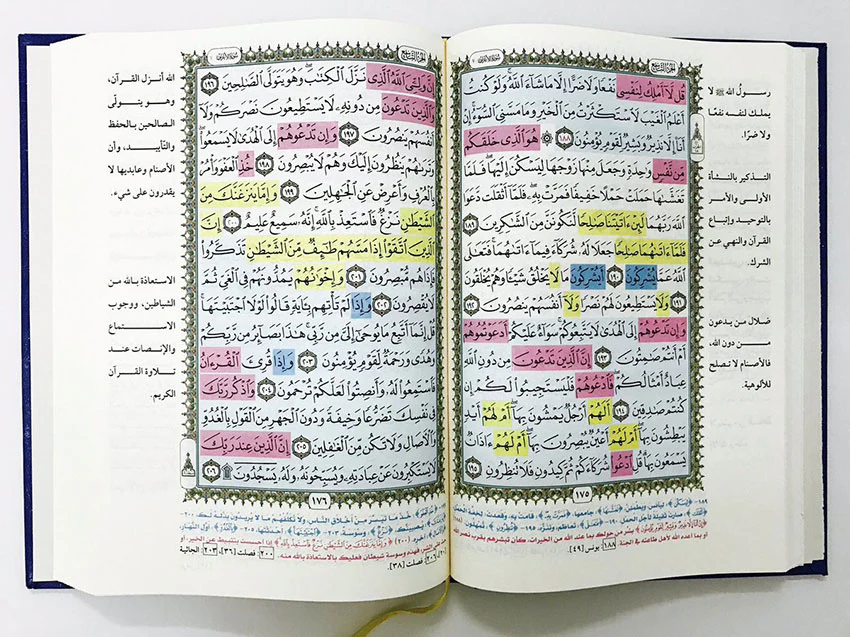 الجزء التاسع
سورة الأعراف ٧
قُل لَّآ أَمْلِكُ لِنَفْسِى نَفْعًا وَلَا ضَرًّا إِلَّا مَا شَآءَ ٱللَّهُ وَلَوْ كُنتُ
أَعْلَمُ ٱلْغَيْبَ لَٱسْتَكْثَرْتُ مِنَ ٱلْخَيْرِ وَمَا مَسَّنِىَ ٱلسُّوٓءُ إِنْ
أَنَا۠ إِلَّا نَذِيرٌ وَبَشِيرٌ لِّقَوْمٍ يُؤْمِنُونَ ١٨٨ ۞ هُوَ ٱلَّذِى خَلَقَكُم
مِّن نَّفْسٍ وَٰحِدَةٍ وَجَعَلَ مِنْهَا زَوْجَهَا لِيَسْكُنَ إِلَيْهَا فَلَمَّا
تَغَشَّىٰهَا حَمَلَتْ حَمْلًا خَفِيفًا فَمَرَّتْ بِهِۦ فَلَمَّآ أَثْقَلَت دَّعَوَا
ٱللَّهَ رَبَّهُمَا لَئِنْ ءَاتَيْتَنَا صَٰلِحًا لَّنَكُونَنَّ مِنَ ٱلشَّٰكِرِينَ ١٨٩
فَلَمَّآ ءَاتَىٰهُمَا صَٰلِحًا جَعَلَا لَهُۥ شُرَكَآءَ فِيمَآ ءَاتَىٰهُمَا فَتَعَٰلَى
ٱللَّهُ عَمَّا يُشْرِكُونَ ١٩٠ أَيُشْرِكُونَ مَا لَا يَخْلُقُ شَيْـًٔا وَهُمْ يُخْلَقُونَ
١٩١ وَلَا يَسْتَطِيعُونَ لَهُمْ نَصْرًا وَلَآ أَنفُسَهُمْ يَنصُرُونَ ١٩٢
وَإِن تَدْعُوهُمْ إِلَى ٱلْهُدَىٰ لَا يَتَّبِعُوكُمْ سَوَآءٌ عَلَيْكُمْ أَدَعَوْتُمُوهُمْ
أَمْ أَنتُمْ صَٰمِتُونَ ١٩٣ إِنَّ ٱلَّذِينَ تَدْعُونَ مِن دُونِ ٱللَّهِ
عِبَادٌ أَمْثَالُكُمْ فَٱدْعُوهُمْ فَلْيَسْتَجِيبُوا۟ لَكُمْ إِن
كُنتُمْ صَٰدِقِينَ ١٩٤ أَلَهُمْ أَرْجُلٌ يَمْشُونَ بِهَآ أَمْ لَهُمْ أَيْدٍ
يَبْطِشُونَ بِهَآ أَمْ لَهُمْ أَعْيُنٌ يُبْصِرُونَ بِهَآ أَمْ لَهُمْ ءَاذَانٌ
يَسْمَعُونَ بِهَا قُلِ ٱدْعُوا۟ شُرَكَآءَكُمْ ثُمَّ كِيدُونِ فَلَا تُنظِرُونِ ١٩٥
١٧٥
رسولُ الله ﷺ لا
يملك لنفسه نفعًا
ولا ضرًا.
التذكير بالنشأة
الأولى والأمر
بالتوحيد وإتباع
القرآن والنهي عن
الشرك.
ضلال من يدعون
من دون الله،
فالأصنام لا تصلح
للألوهية.
أو بما أعده الله لأهل طاعته في الجنة. ١٨٨: يونس [٤٩].
الجزء التاسع
سورة الأعراف ٧
إِنَّ وَلِـِّۧىَ ٱللَّهُ ٱلَّذِى نَزَّلَ ٱلْكِتَٰبَ وَهُوَ يَتَوَلَّى ٱلصَّٰلِحِينَ ١٩٦
وَٱلَّذِينَ تَدْعُونَ مِن دُونِهِۦ لَا يَسْتَطِيعُونَ نَصْرَكُمْ وَلَآ
أَنفُسَهُمْ يَنصُرُونَ ١٩٧ وَإِن تَدْعُوهُمْ إِلَى ٱلْهُدَىٰ لَا يَسْمَعُوا۟
وَتَرَىٰهُمْ يَنظُرُونَ إِلَيْكَ وَهُمْ لَا يُبْصِرُونَ ١٩٨ خُذِ ٱلْعَفْوَ وَأْمُرْ
بِٱلْعُرْفِ وَأَعْرِضْ عَنِ ٱلْجَٰهِلِينَ ١٩٩ وَإِمَّا يَنزَغَنَّكَ مِنَ
ٱلشَّيْطَٰنِ نَزْغٌ فَٱسْتَعِذْ بِٱللَّهِ إِنَّهُۥ سَمِيعٌ عَلِيمٌ ٢٠٠ إِنَّ
ٱلَّذِينَ ٱتَّقَوْا۟ إِذَا مَسَّهُمْ طَٰٓئِفٌ مِّنَ ٱلشَّيْطَٰنِ تَذَكَّرُوا۟
فَإِذَا هُم مُّبْصِرُونَ ٢٠١ وَإِخْوَٰنُهُمْ يَمُدُّونَهُمْ فِى ٱلْغَىِّ ثُمَّ
لَا يُقْصِرُونَ ٢٠٢ وَإِذَا لَمْ تَأْتِهِم بِـَٔايَةٍ قَالُوا۟ لَوْلَا ٱجْتَبَيْتَهَا
قُلْ إِنَّمَآ أَتَّبِعُ مَا يُوحَىٰٓ إِلَىَّ مِن رَّبِّى هَٰذَا بَصَآئِرُ مِن رَّبِّكُمْ
وَهُدًى وَرَحْمَةٌ لِّقَوْمٍ يُؤْمِنُونَ ٢٠٣ وَإِذَا قُرِئَ ٱلْقُرْءَانُ
فَٱسْتَمِعُوا۟ لَهُۥ وَأَنصِتُوا۟ لَعَلَّكُمْ تُرْحَمُونَ ٢٠٤ وَٱذْكُر رَّبَّكَ
فِى نَفْسِكَ تَضَرُّعًا وَخِيفَةً وَدُونَ ٱلْجَهْرِ مِنَ ٱلْقَوْلِ بِٱلْغُدُوِّ
وَٱلْءَاصَالِ وَلَا تَكُن مِّنَ ٱلْغَٰفِلِينَ ٢٠٥ إِنَّ ٱلَّذِينَ عِندَ رَبِّكَ
لَا يَسْتَكْبِرُونَ عَنْ عِبَادَتِهِۦ وَيُسَبِّحُونَهُۥ وَلَهُۥ يَسْجُدُونَ ۩ ٢٠٦
١٧٦
الله أنزل القرآن،
وهو يتولّى
الصالحين بالحفظ
والتأييد، وأن
الأصنام وعابديها لا
يقدرون على شيء.
الاستعاذة بالله من
الشياطين، ووجوب
الاستماع
والإنصات عند
تلاوة القرآن
الكريم.
٢٠٠: فصلت [٣٦]، ٢٠٣: الجاثية
[٢٠]، ٢٠٦: فصلت [٣٨].